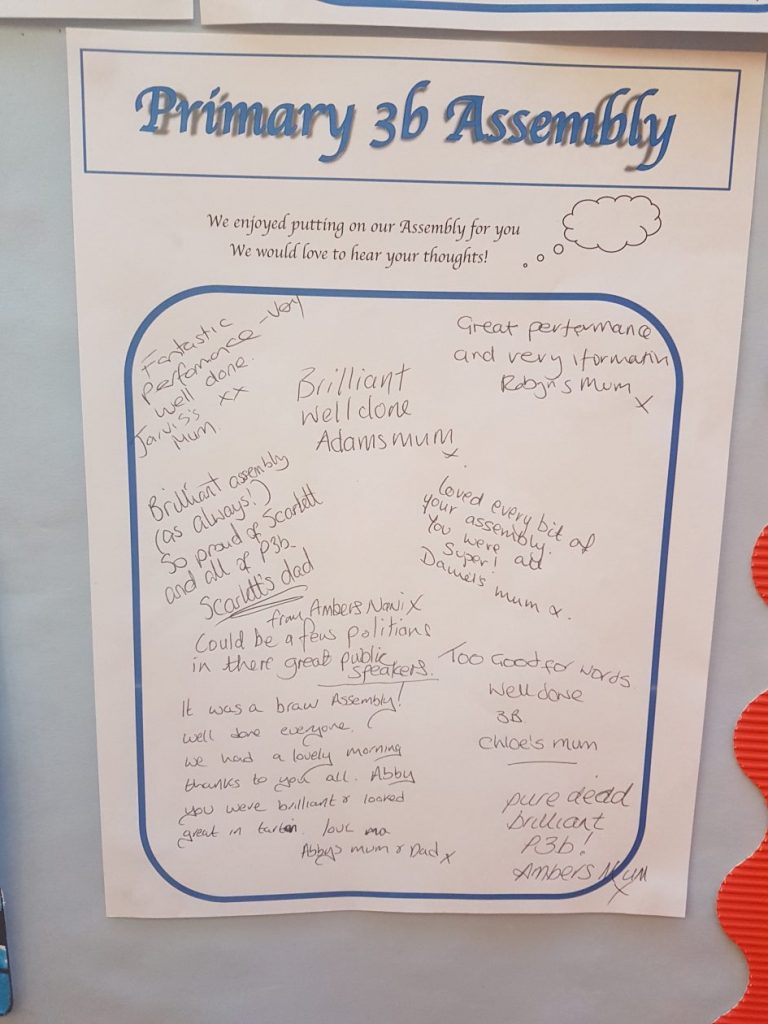 Primary 3b Assembly
We enjoyed putting on our Assembly for you
We would love to hear your thoughts!
Fantastic
Perfomance - Very
well done.
Jarvis's xx
Mum.
Brilliant
Well done
Adams mum x
Great performance
and very iformatin
Robyn's Mum x
Brilliant assembly
(as always!)
So proud of Scarlett
and all of P3b.
Scarlett's dad
Loved every bit of
your assembly.
You were all
Super!
Daniel's mum x.
from Ambers Nani X
Could be a few politians
in there great public
speakers.
Too Good for words
Well done
3B
Chloe's mum
It was a braw Assembly!
Well done everyone.
We had a lovely morning
thanks to you all. Abby
you were brilliant & looked
great in tartan. love
Abbys mum & Dad x
pure dead
brilliant
P3b!
Ambers Mum
x